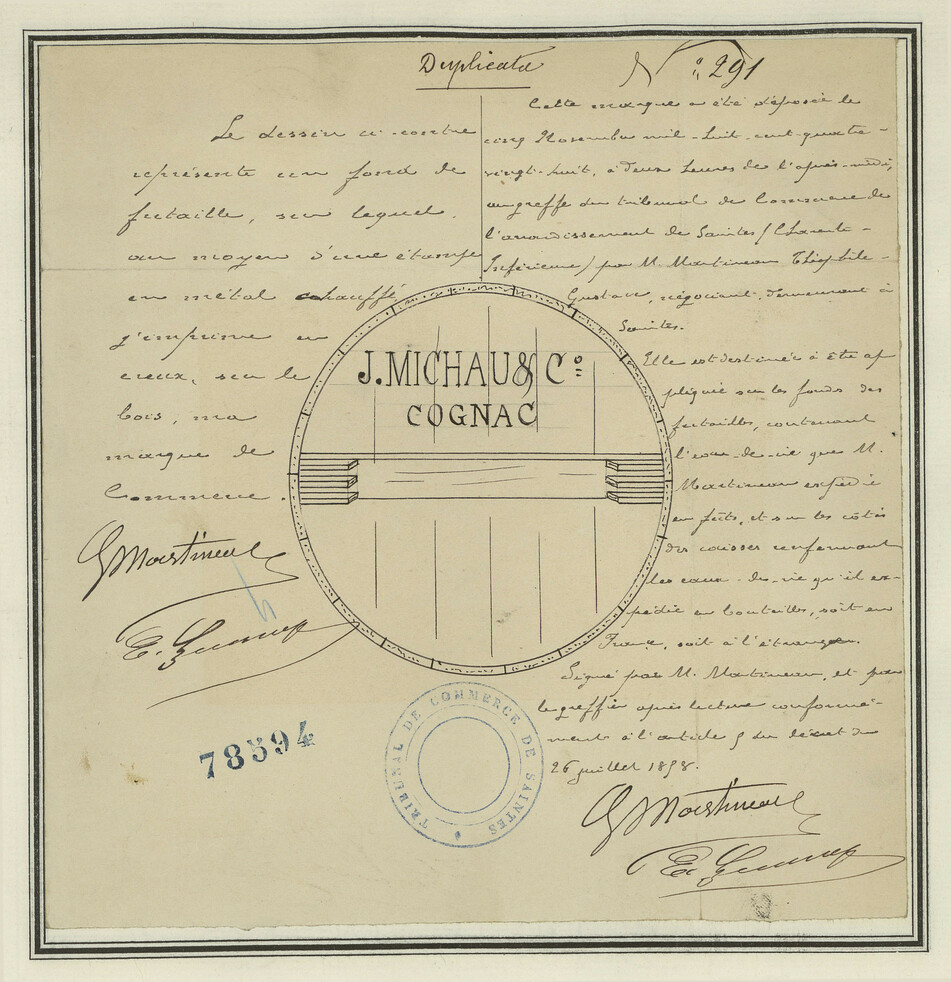 Duplicata
N° 291
Le dessin ci-contre
représente un fond de
futaille, sur lequel,
au moyen d'une étampe
en métal chauffé
j'imprime en
creux, sur le
bois, ma
marque de
Commerce.
G Martineau
J. MICHAU & Co
COGNAC
Cette marque a été déposée le
cinq Novembre mil-huit-cent-quatre-
vingt-huit, à deux heures de l'après-midi,
au greffe du tribunal de Commerce de
l'arrondissement de Saintes (Charente-
Inférieure) par M. Martineau Théophile-
Gustave, négociant, demeurant à
Saintes.
Elle est destinée à être ap
pliquée sur les fonds des
futailles, contenant
l'eau-de-vie que M.
Martineau expédie
en fûts, et sur les côtés
des caisses renfermant
les eaux-de-vie qu'il ex-
pédie en bouteilles, soit en
France, soit à l'étranger.
Signé par M. Martineau, et par
le greffier après lecture conformé-
ment à l'article 5 du décret du
26 juillet 1858.
G Martineau
78594
TRIBUNAL DE COMMERCE DE SAINTES